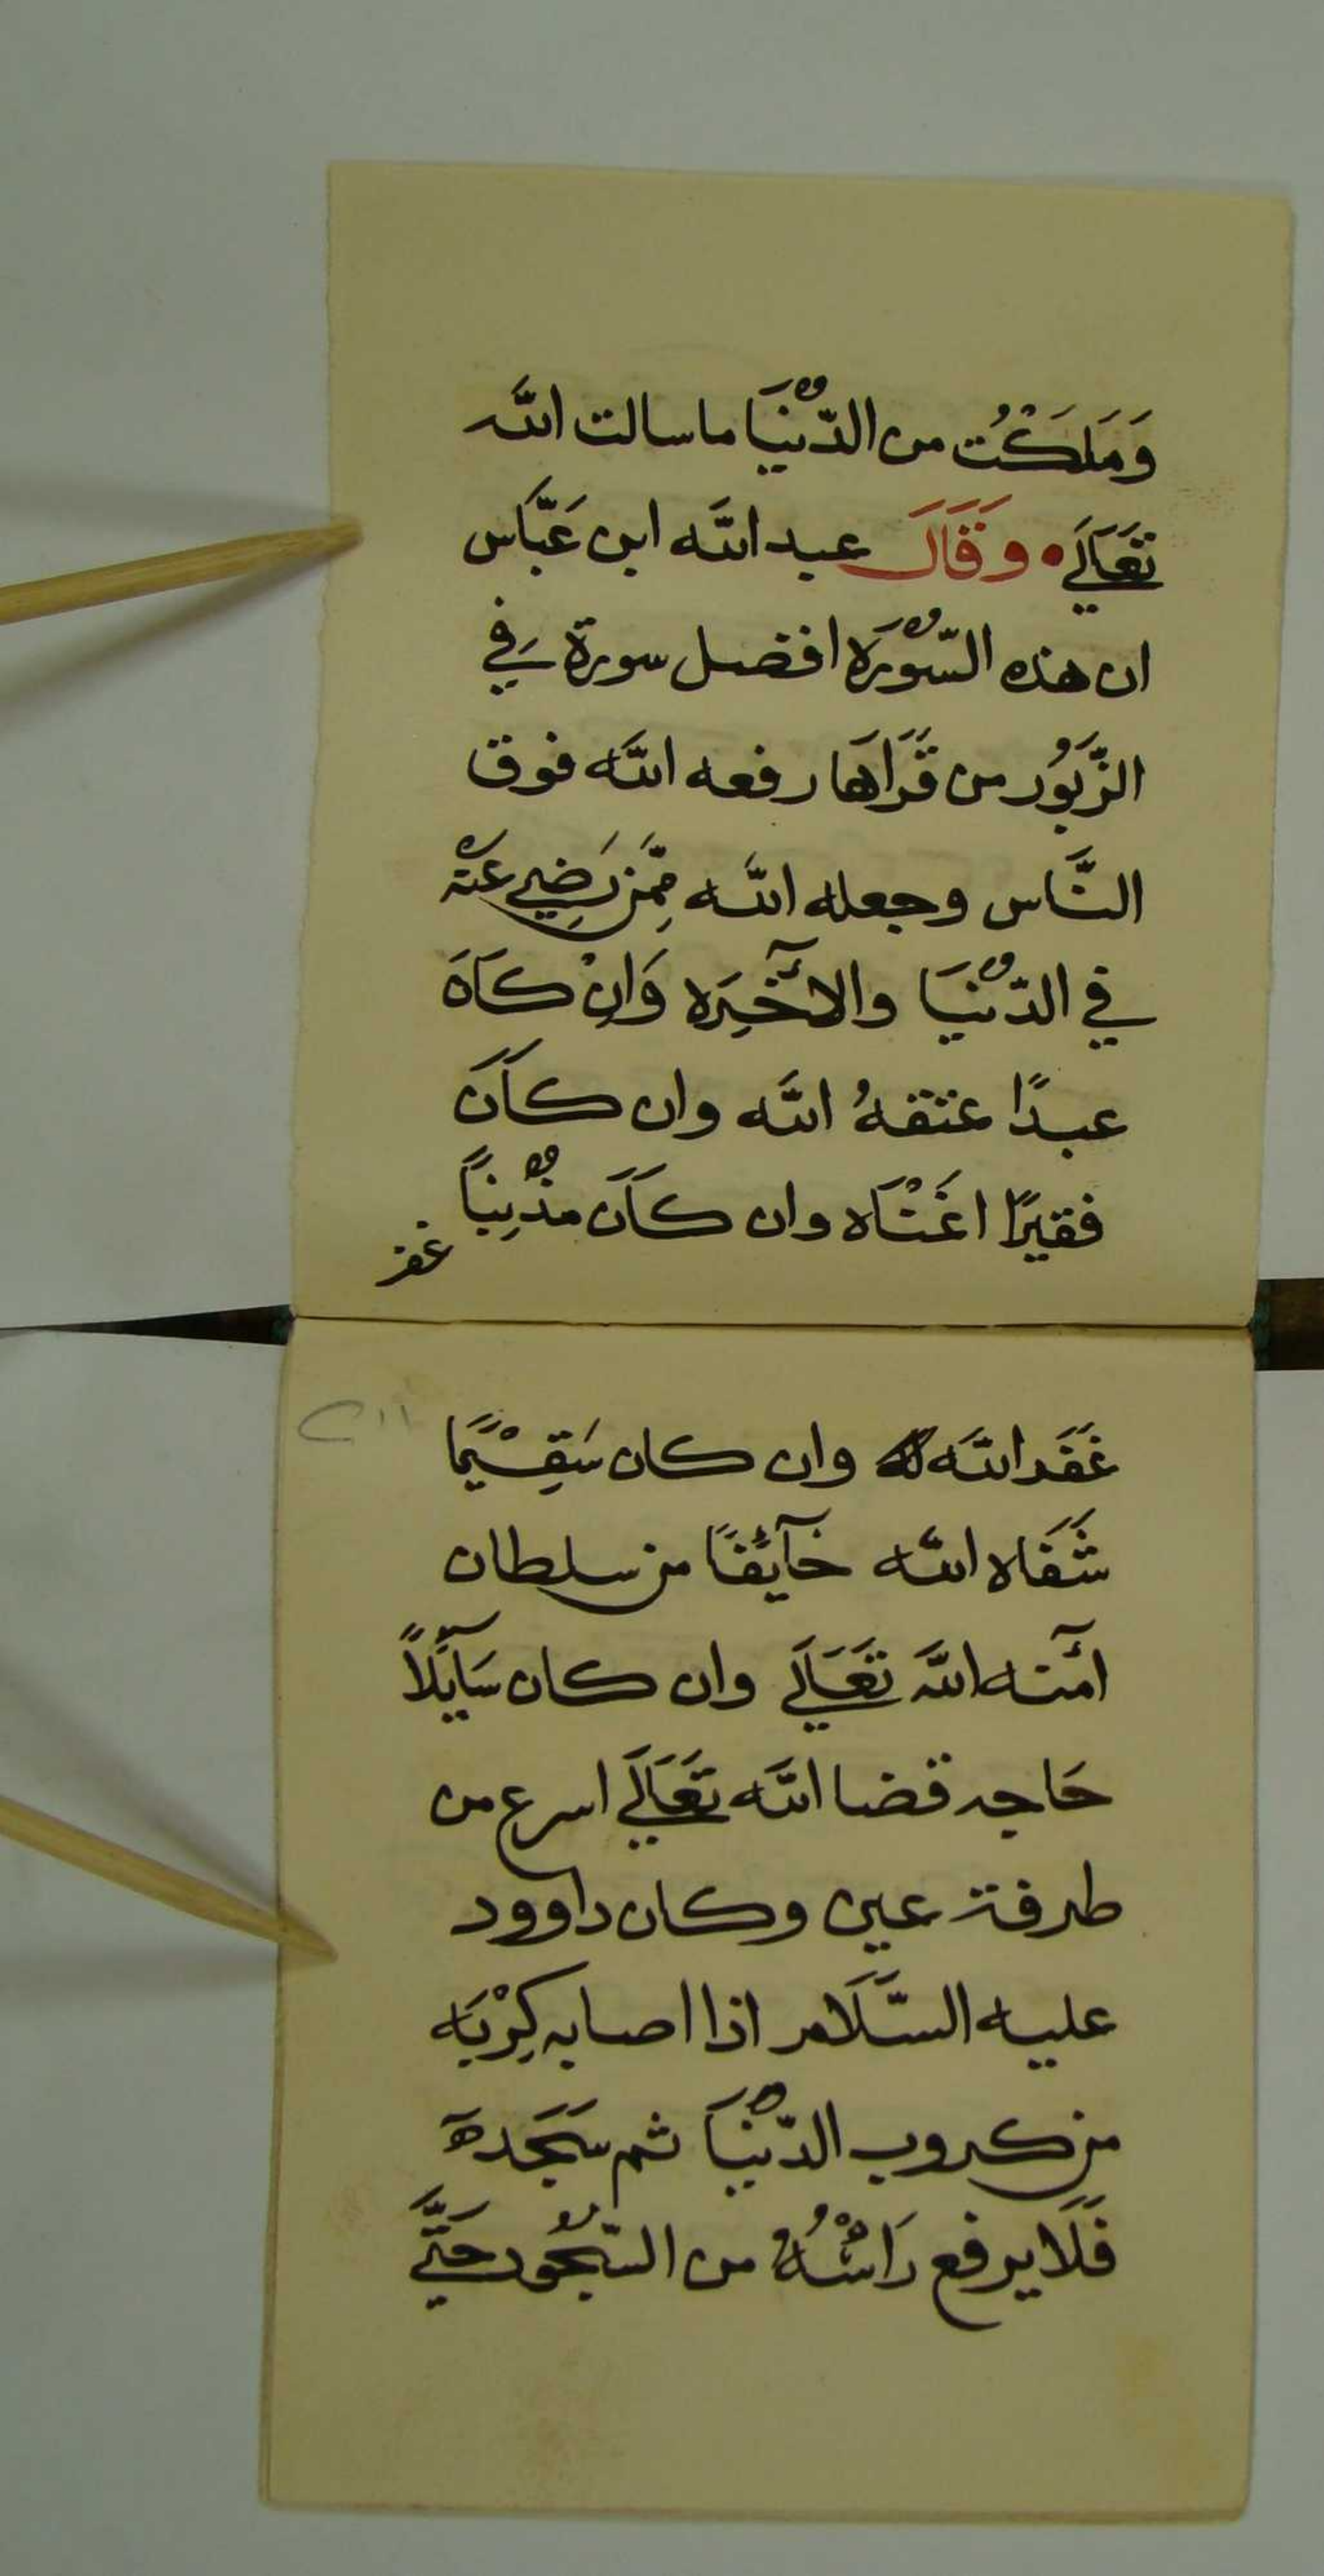 وَمَلَكْتُ من الدّنْيَا ما سالت الله
تَعَالَي • وَقَالَ عبد الله ابن عَبَّاس
ان هذه السّوْرَه افضل سورة في
الزّبَوُر من قَرَاهَا رفعه الله فوق
النَّاس وجعله الله مِمَّن رَضِي عَنْه
في الدّنْيَا والآخِرَه وَانْ كَانَ
عبدًا عتقهُ الله وان كَانَ
فقيرًا اغَنْاه وان كَانَ مذْنِبًا
غفر
غَفَر الله له وان كان سَقِيْمًا
شَفَاه الله خَآئِفًا من سلطان
آمنه الله تَعَالَي وان كان سَآئِلاً
حَاجه قضا الله تَعَالَي اسرع من
طرفة عين وكان داوود
عليه السَّلَام اذا اصابه كِرْبَه
من كروب الدّنْيَا ثم سَجَدَه
فَلَا يرفع رَاسْهُ من السّجُود حَتَّي